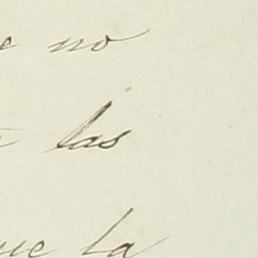 no
las
que la